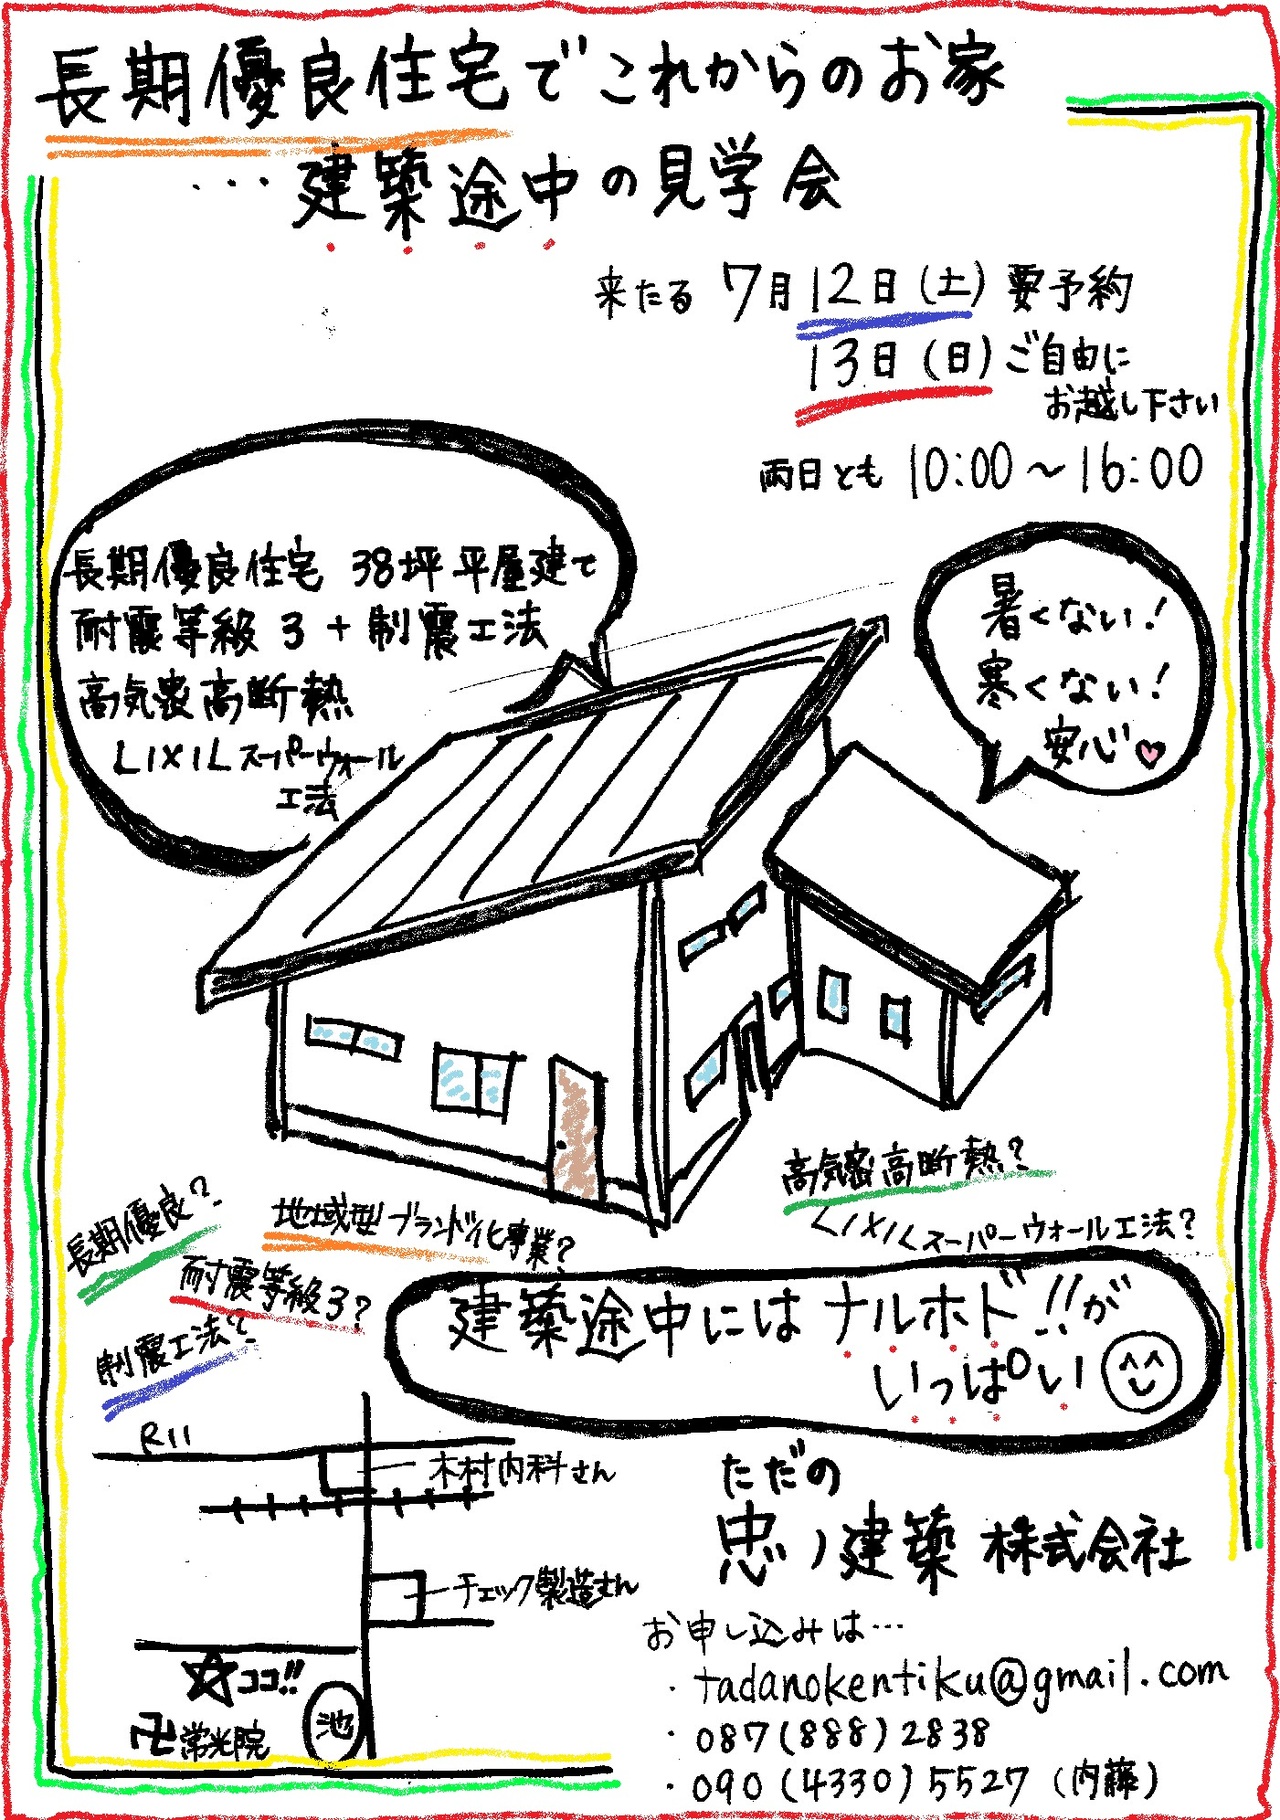 長期優良住宅でこれからのお家
・・・建築途中の見学会
来たる 7月12日(土) 要予約
13日(日) ご自由に
お越し下さい
両日とも 10:00～16:00
長期優良住宅 38坪 平屋建て
耐震等級 3 + 制震工法
高気密高断熱
LIXILスーパーウォール
工法
暑くない!
寒くない!
安心♥
高気密高断熱?
LIXILスーパーウォール工法?
長期優良?
地域型ブランド化事業?
耐震等級3?
制震工法?
建築途中にはナルホド!!が
いっぱい
R11
木村内科さん
チェック製造さん
☆ココ!!
池
卍常光院
ただの
忠ノ建築 株式会社
お申し込みは…
・tadanokentiku@gmail.com
・087(888)2838
・090(4330)5527 (内藤)